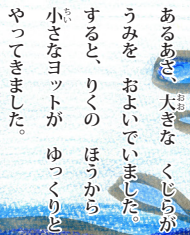 あるあさ、大きな　くじらが
うみを　およいでいました。
すると、りくの　ほうから
小さなヨットが　ゆっくりと
やってきました。